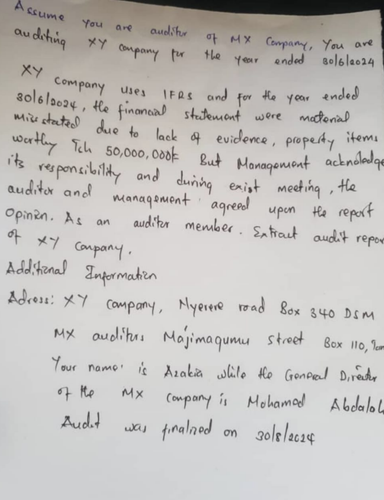 Assume you are auditor of MX Company, You are
auditing XY company for the year ended 30/6/2024
XY Company uses IFRS and for the year ended
30/6/2024, the financial statement were material
misstated due to lack of evidence, property items
worthy Tsh 50,000,000/= But Management acknoledge
its responsibility and during exist meeting, the
auditor and management agreed upon the report
Opinion. As an auditor member. Extract audit repor
of XY Company.
Additional Information
Adress: XY Company, Nyerere road Box 340 DSM
MX auditors Majimagumu street Box 110,
Your name is Azakia while the General Director
of the MX company is Mohamed Abdalah
Audit was finalized on 30/8/2024